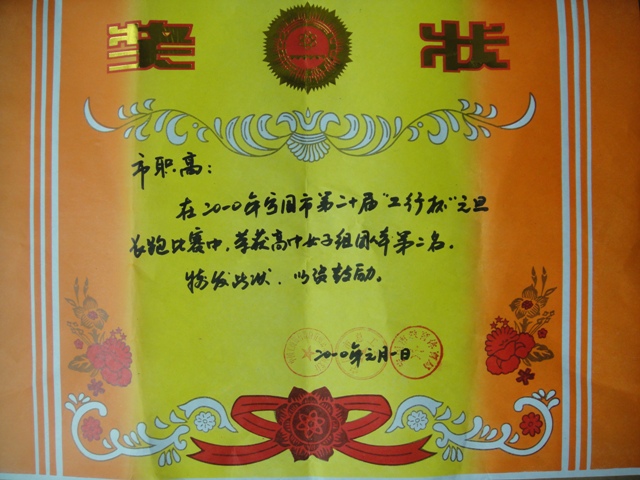 奖状
市职高:
在二〇一〇年宁国市第二十届"工行杯"元旦
长跑比赛中,荣获高中女子组团体第二名。
特发此状,以资鼓励。
二〇一〇年元月一日